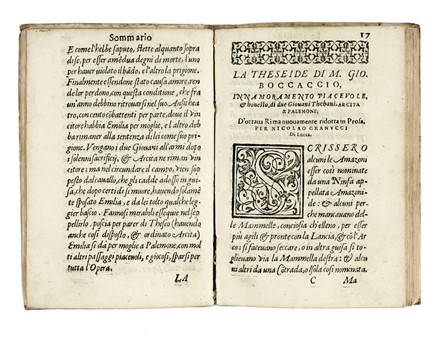 Sommario
E come l'hebbe saputo, stette alquanto sopra
di se, per esser amẽdua degni di morte, l'uno
per hauer uiolato il bãdo, et l'altro la prigione.
Finalmente essendone stato causa amore, fa
del lor perdono, con questa conditione, che fra
un'anno debbino ritrouarsi nel suo Anfithea
tro, con cento cõbattenti per parte, doue il vin
citor habbia Emilia per moglie, e l altro deb
ba rimaner alla sentenza di lei come suo pri-
gione. Vengano i due Giouani all'armi dopo
i solenni sacrificij, & Arcita ne riman vin
citore: ma nel circundare il campo, vien sop
posto dal cauallo, che gli cadde adosso in gui
sa, che dopo certi dì si muore, hauendo solamẽ
te sposato Emilia, e da lei tolto qualche leg
gier bascio. Fannosi mirabili essequie nel sep
pellirlo, poscia per parer di Theseo (hauendo
anche così disposto, & ordinato Arcita)
Emilia si dà per moglie a Palemone, con mol
ti altri passaggi piaceuoli, e giocosi, sparsi per
tutta l'Opera.
LA
17
LA THESEIDE DI M. GIO.
BOCCACCIO,
INNAMORAMENTO PIACEVOLE,
& honesto, di due Giouani Thebani, ARCITA
& PALEMONE;
D'ottaua Rima nuouamente ridotta in Prosa,
PER NICOLAO GRANVCCI
Di Lucca.
SCRISSERO
alcuni le Amazoni
esser così nominate
da una Ninfa ap-
pellata Amazoni-
de: & alcuni per-
che mancauano del-
le Mammelle, conciosia che elleno, per esser
più agili & pronte con la Lancia, & cõ l'Ar-
co: si faceuano seccare, o in altra guisa si to-
glieuano via la Mammella destra: & alcu
ni altri da una Cõtrada, o Isola così nominata.
C Ma